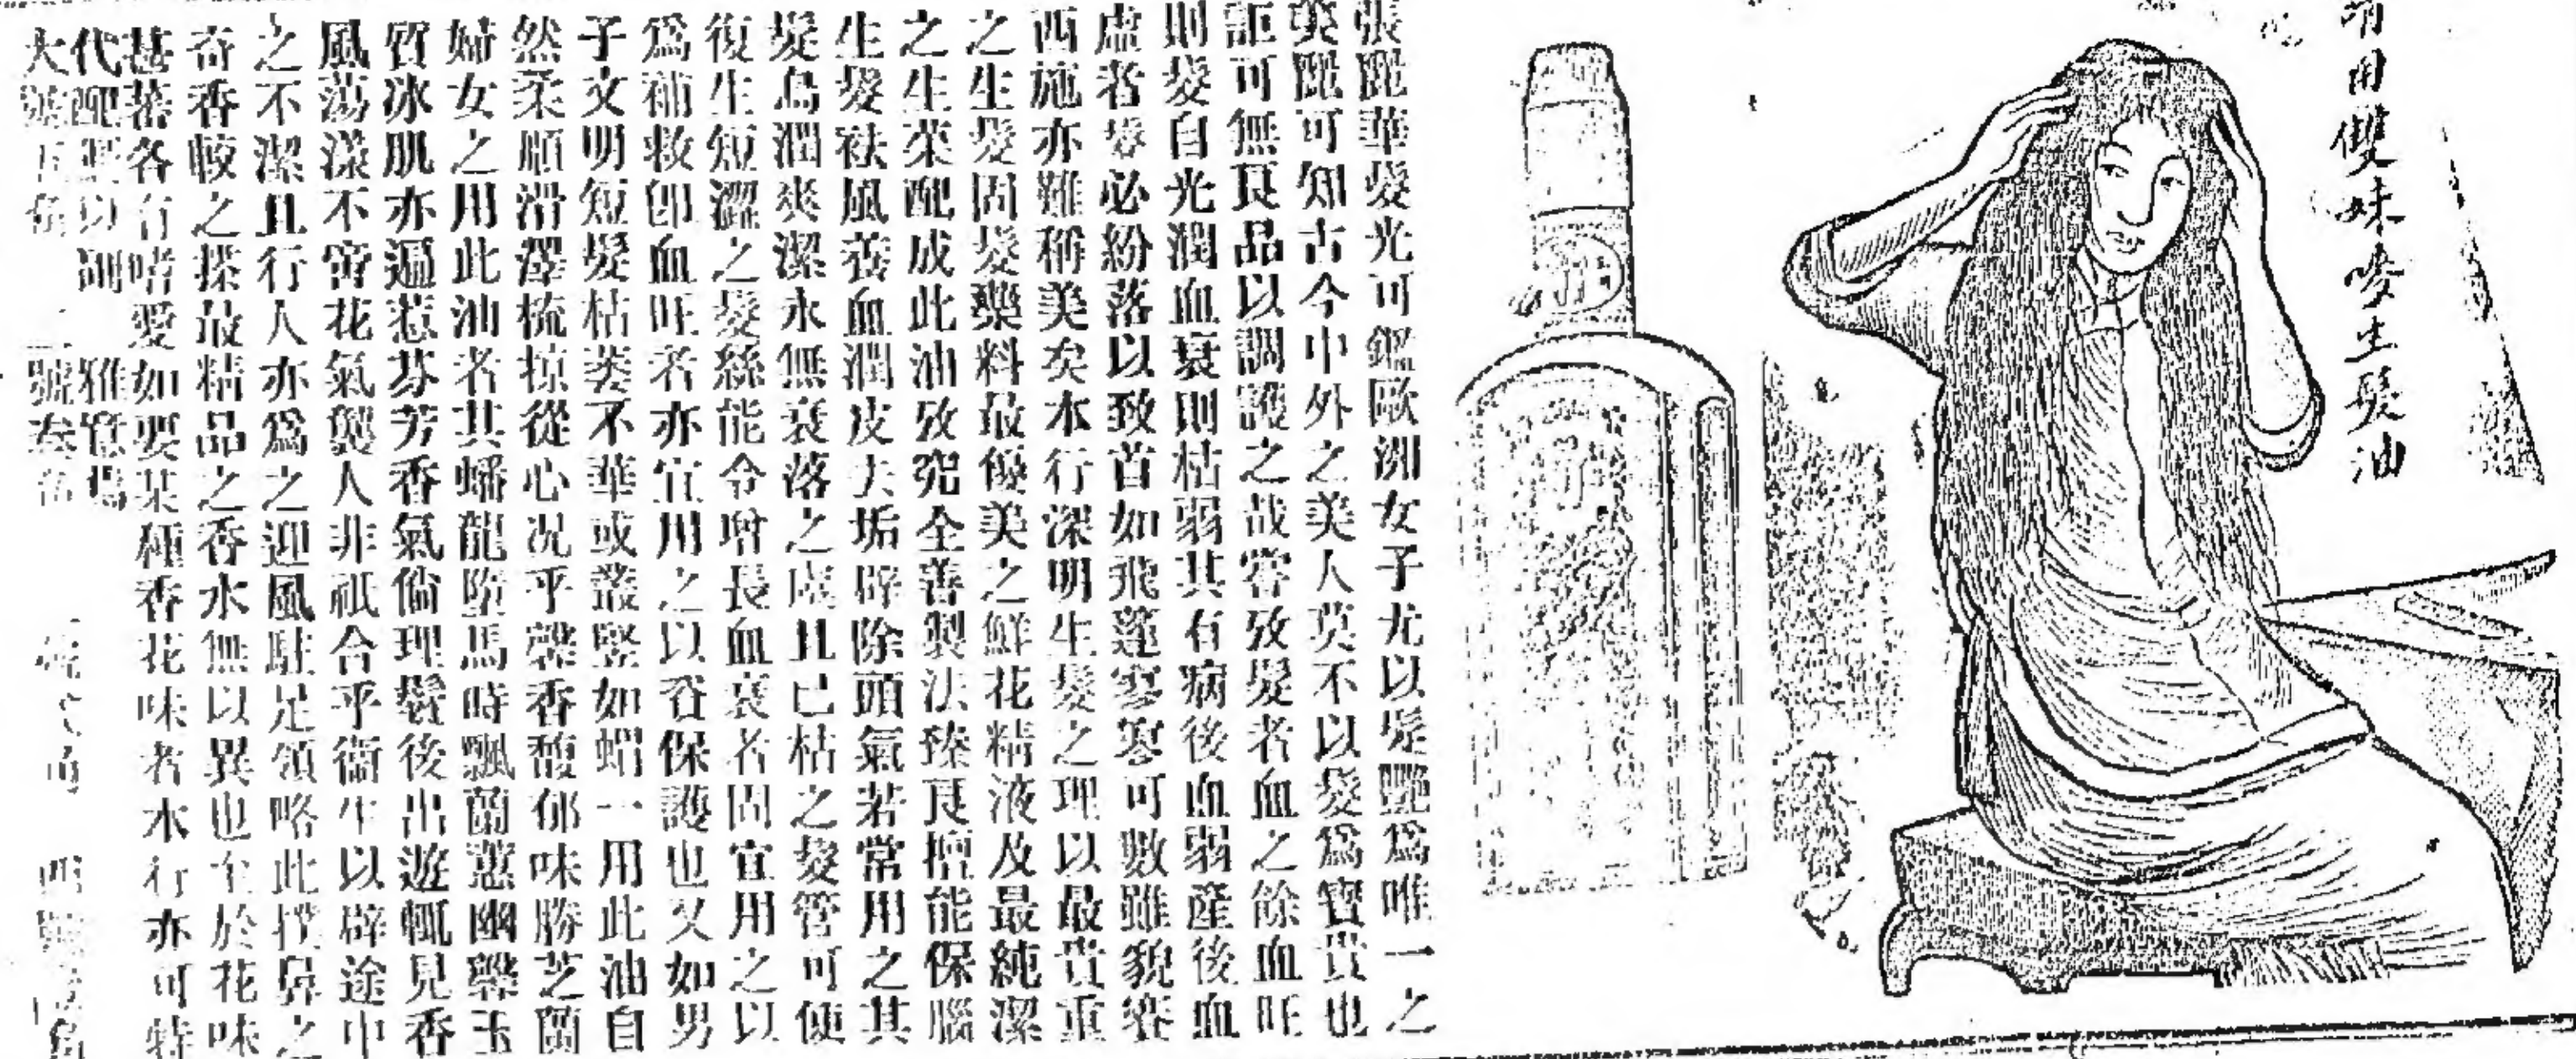 用雙妹嘜生髮油
張麗華髮光可鑑歐洲女子尤以髮艷爲唯一之
美麗可知古今中外之美人莫不以髮爲寶貴也
詎可無良品以調護之哉嘗攷髮者血之餘血旺
則髮自光潤血衰則枯弱其有病後血弱產後血
虛者髮必紛落以致首如飛蓬寥寥可數雖貌襲
西施亦難稱美矣本行深明生髮之理以最貴重
之生髮固髮藥料最優美之鮮花精液及最純潔
之生生菜配成此油攷究全善製法臻良擅能保腦
生髮袪風養血潤皮去垢辟除頭氣若常用之其
髮烏潤爽潔永無衰落之虞且已枯之髮管可使
復生短澀之髮絲能令增長血衰者固宜用之以
爲補救即血旺者亦宜用之以谷保護也又如男
子文明短髮枯萎不華或叢豎如蝟一用此油自
然柔順滑澤梳掠從心况乎馨香馥郁味勝芝蘭
婦女之用此油者其蟠龍墮馬時飄蘭蕙幽馨玉
質冰肌亦遍惹芬芳香氣倘理鬢後出遊輒見香
風蕩漾不啻花氣襲人非祇合乎衞生以辟途中
之不潔且行人亦爲之迎風駐足領略此撲鼻之
奇香較之搽最精品之香水無以異也至於花味
甚蕃各有嗜愛如要某種香花味者本行亦可特
代配以副雅意
大號 號